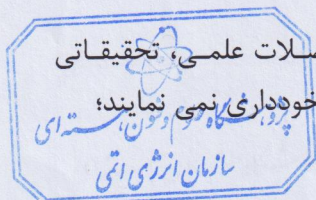 صـلات علمـی، تحقیقـاتی
خودداری نمی نمایند؛
پژوهشگاه علوم و فنون هسته ای
سازمان انرژی اتمی